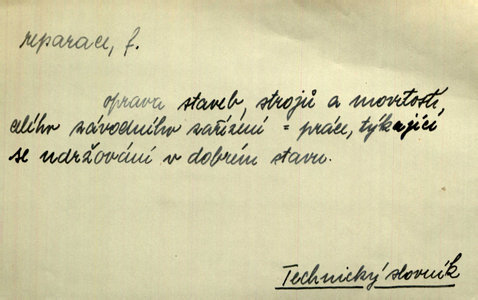 reparace, f.
oprava staveb, strojů a movitostí,
celého závodního zařízení = práce, týkající
se udržování v dobrém stavu.
Technický slovník